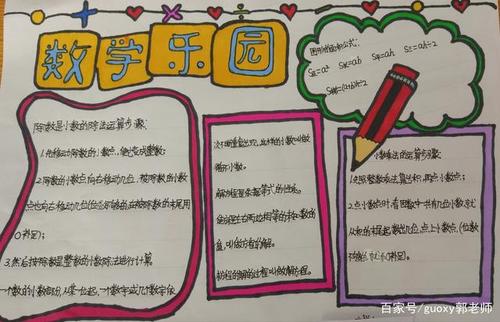 数学乐园
图形的面积公式:
S正=a² S长=ab S平=ah S三=ah÷2
S梯=(a+b)h÷2
除数是小数的除法运算步骤:
1.先移动除数的小数点,使它变成整数;
2.除数的小数点向右移动几位,被除数的小数
点也向右移动几位(位数不够的在被除数的末尾用
0补足);
3.然后按除数是整数的小数除法进行计算
一个数的小数部分,从某一位起,一个数字或几个数字依
次不断重复出现,这样的小数叫做
循环小数。
解方程
值,叫做方程的解。
求方程的解的过程叫做解方程。
小数乘法的运算步骤:
1.先按整数乘法算出积,再点小数点;
2.点小数点时,看因数中一共有几位小数,就
从积的右边起数出几位,点上小数点。(位数
不够时,用0补足)
百家号/guoxy郭老师